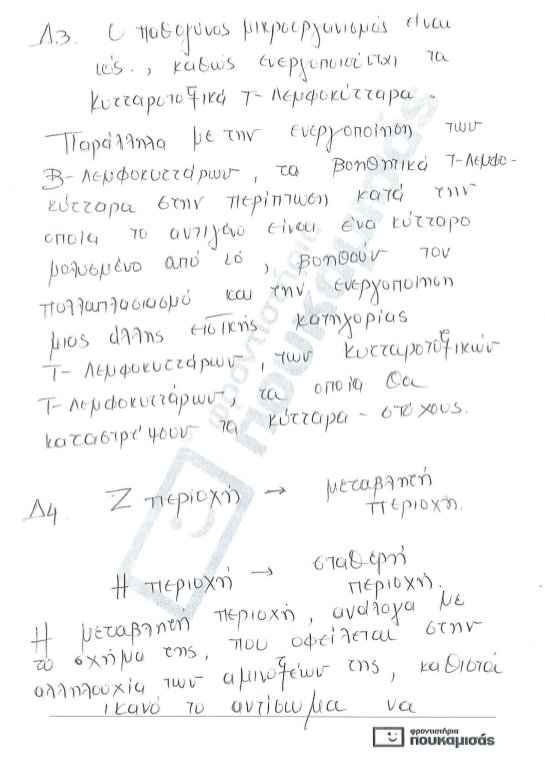 Δ.3 Ο παθογόνος μικροοργανισμός είναι
ιός., καθώς ενεργοποιούνται τα
κυτταροτοξικά Τ- Λεμφοκύτταρα.
Παράλληλα με την ενεργοποίηση των
Β- Λεμφοκυττάρων, τα βοηθητικά Τ-Λεμφο-
κύτταρα στην περίπτωση κατά την
οποία το αντιγόνο είναι ένα κύτταρο
μολυσμένο από ιό, βοηθούν τον
πολλαπλασιασμό και την ενεργοποίηση
μιας άλλης ειδικής κατηγορίας
Τ- Λεμφοκυττάρων, των κυτταροτοξικών
Τ- Λεμφοκυττάρων, τα οποία θα
καταστρέψουν τα κύτταρα - στόχους.
Δ4 Ζ περιοχή → μεταβλητή
περιοχή.
Η περιοχή → σταθερή
περιοχή.
Η μεταβλητή περιοχή, ανάλογα με
το σχήμα της, που οφείλεται στην
αλληλουχία των αμινοξέων της, καθιστά
ικανό το αντίσωμα να
φροντιστήρια
πουκαμισάς